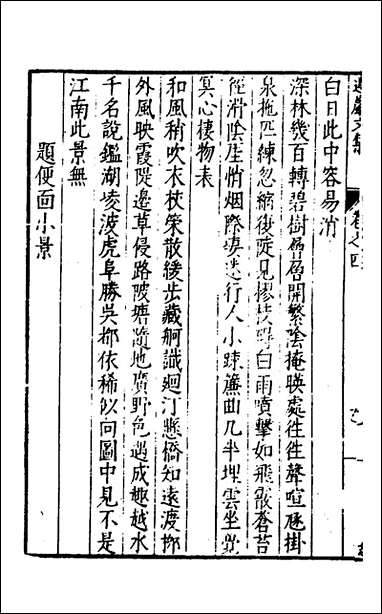 遵巖文集
卷之四
白日此中容易消
深林幾百轉碧樹層層開繁陰掩暎處往往聲喧豗掛
泉拖匹練忽縮復陡見
白雨噴擊如飛霰蒼苔
徑滑陰生悄烟際
迷行人小疎簾曲几半埋雲坐覺
冥心棲物表
和風稍吹衣杖策散緩步藏舸識廻汀懸橋知遠渡
外風映霞隄邊草侵路陂塘隨地廣野色遇成趣越水
千名說鑑湖凌波虎阜勝吳
依稀似向圖中見不是
江南此景無
題便面小景